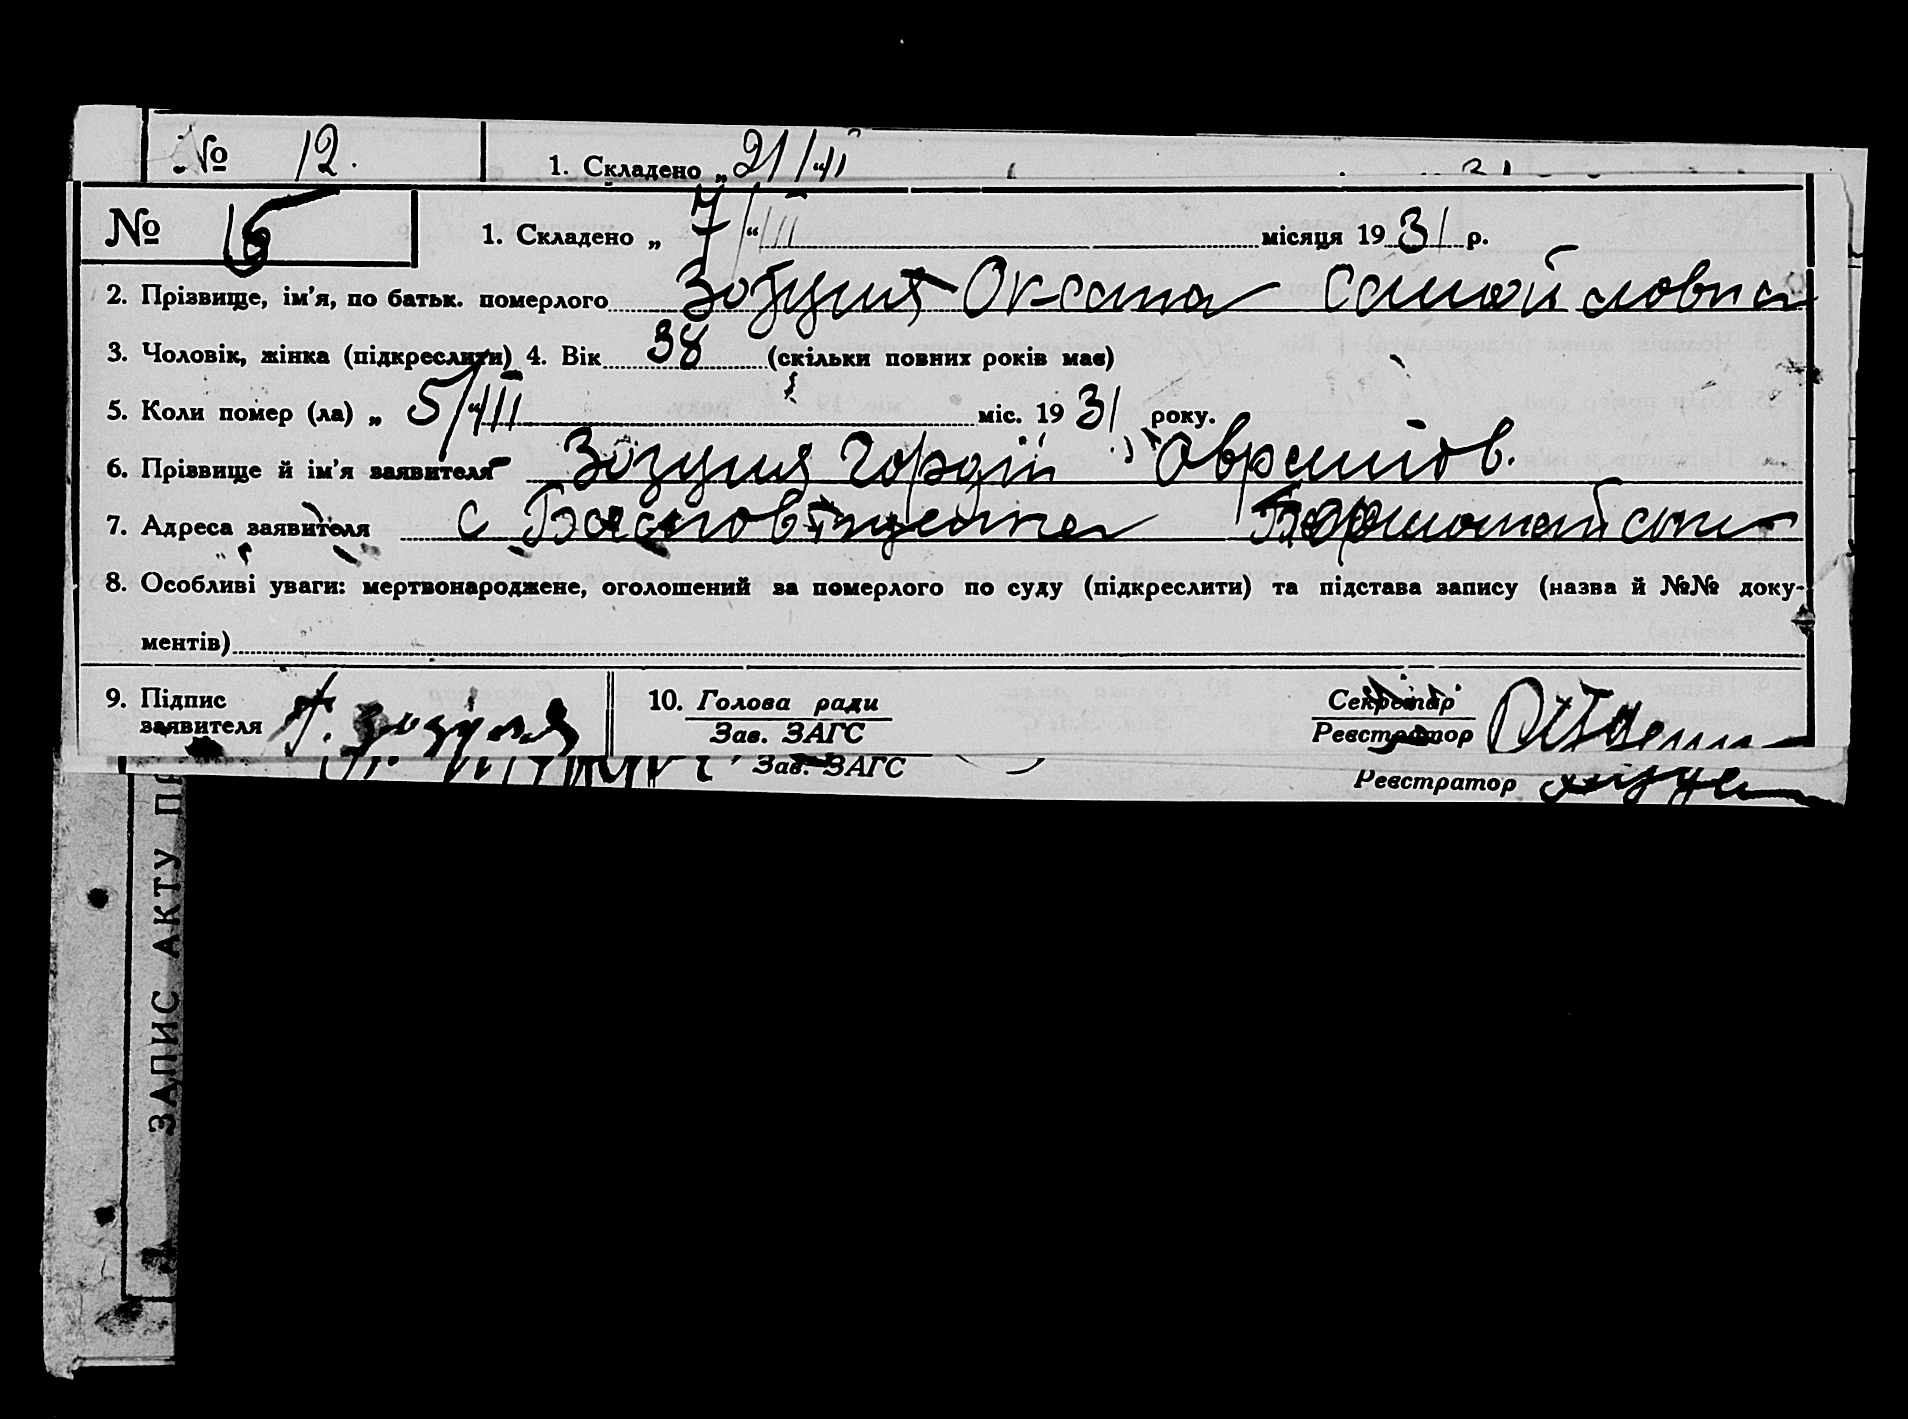 № 12. 1. Складено „21/III
№ 15 1. Складено „ 7/"III місяця 1931 р.
2. Прізвище, ім'я, по батьк. померлого Зозуля Оксана Самойловна
3. Чоловік, жінка (підкреслити) 4. Вік 38 (скільки повних років має)
5. Коли помер (ла) „ 5/"III міс. 1931 року.
6. Прізвище й ім'я заявителя Зозуля Гордій
7. Адреса заявителя с
8. Особливі уваги: мертвонароджене, оголошений за померлого по суду (підкреслити) та підстава запису (назва й №№ доку-
ментів)
9. Підпис заявителя Г. Зозуля 10. Голова ради Зав. ЗАГС Секретар Реєстратор
Зав. ЗАГС Реєстратор
ЗАПИС АКТУ